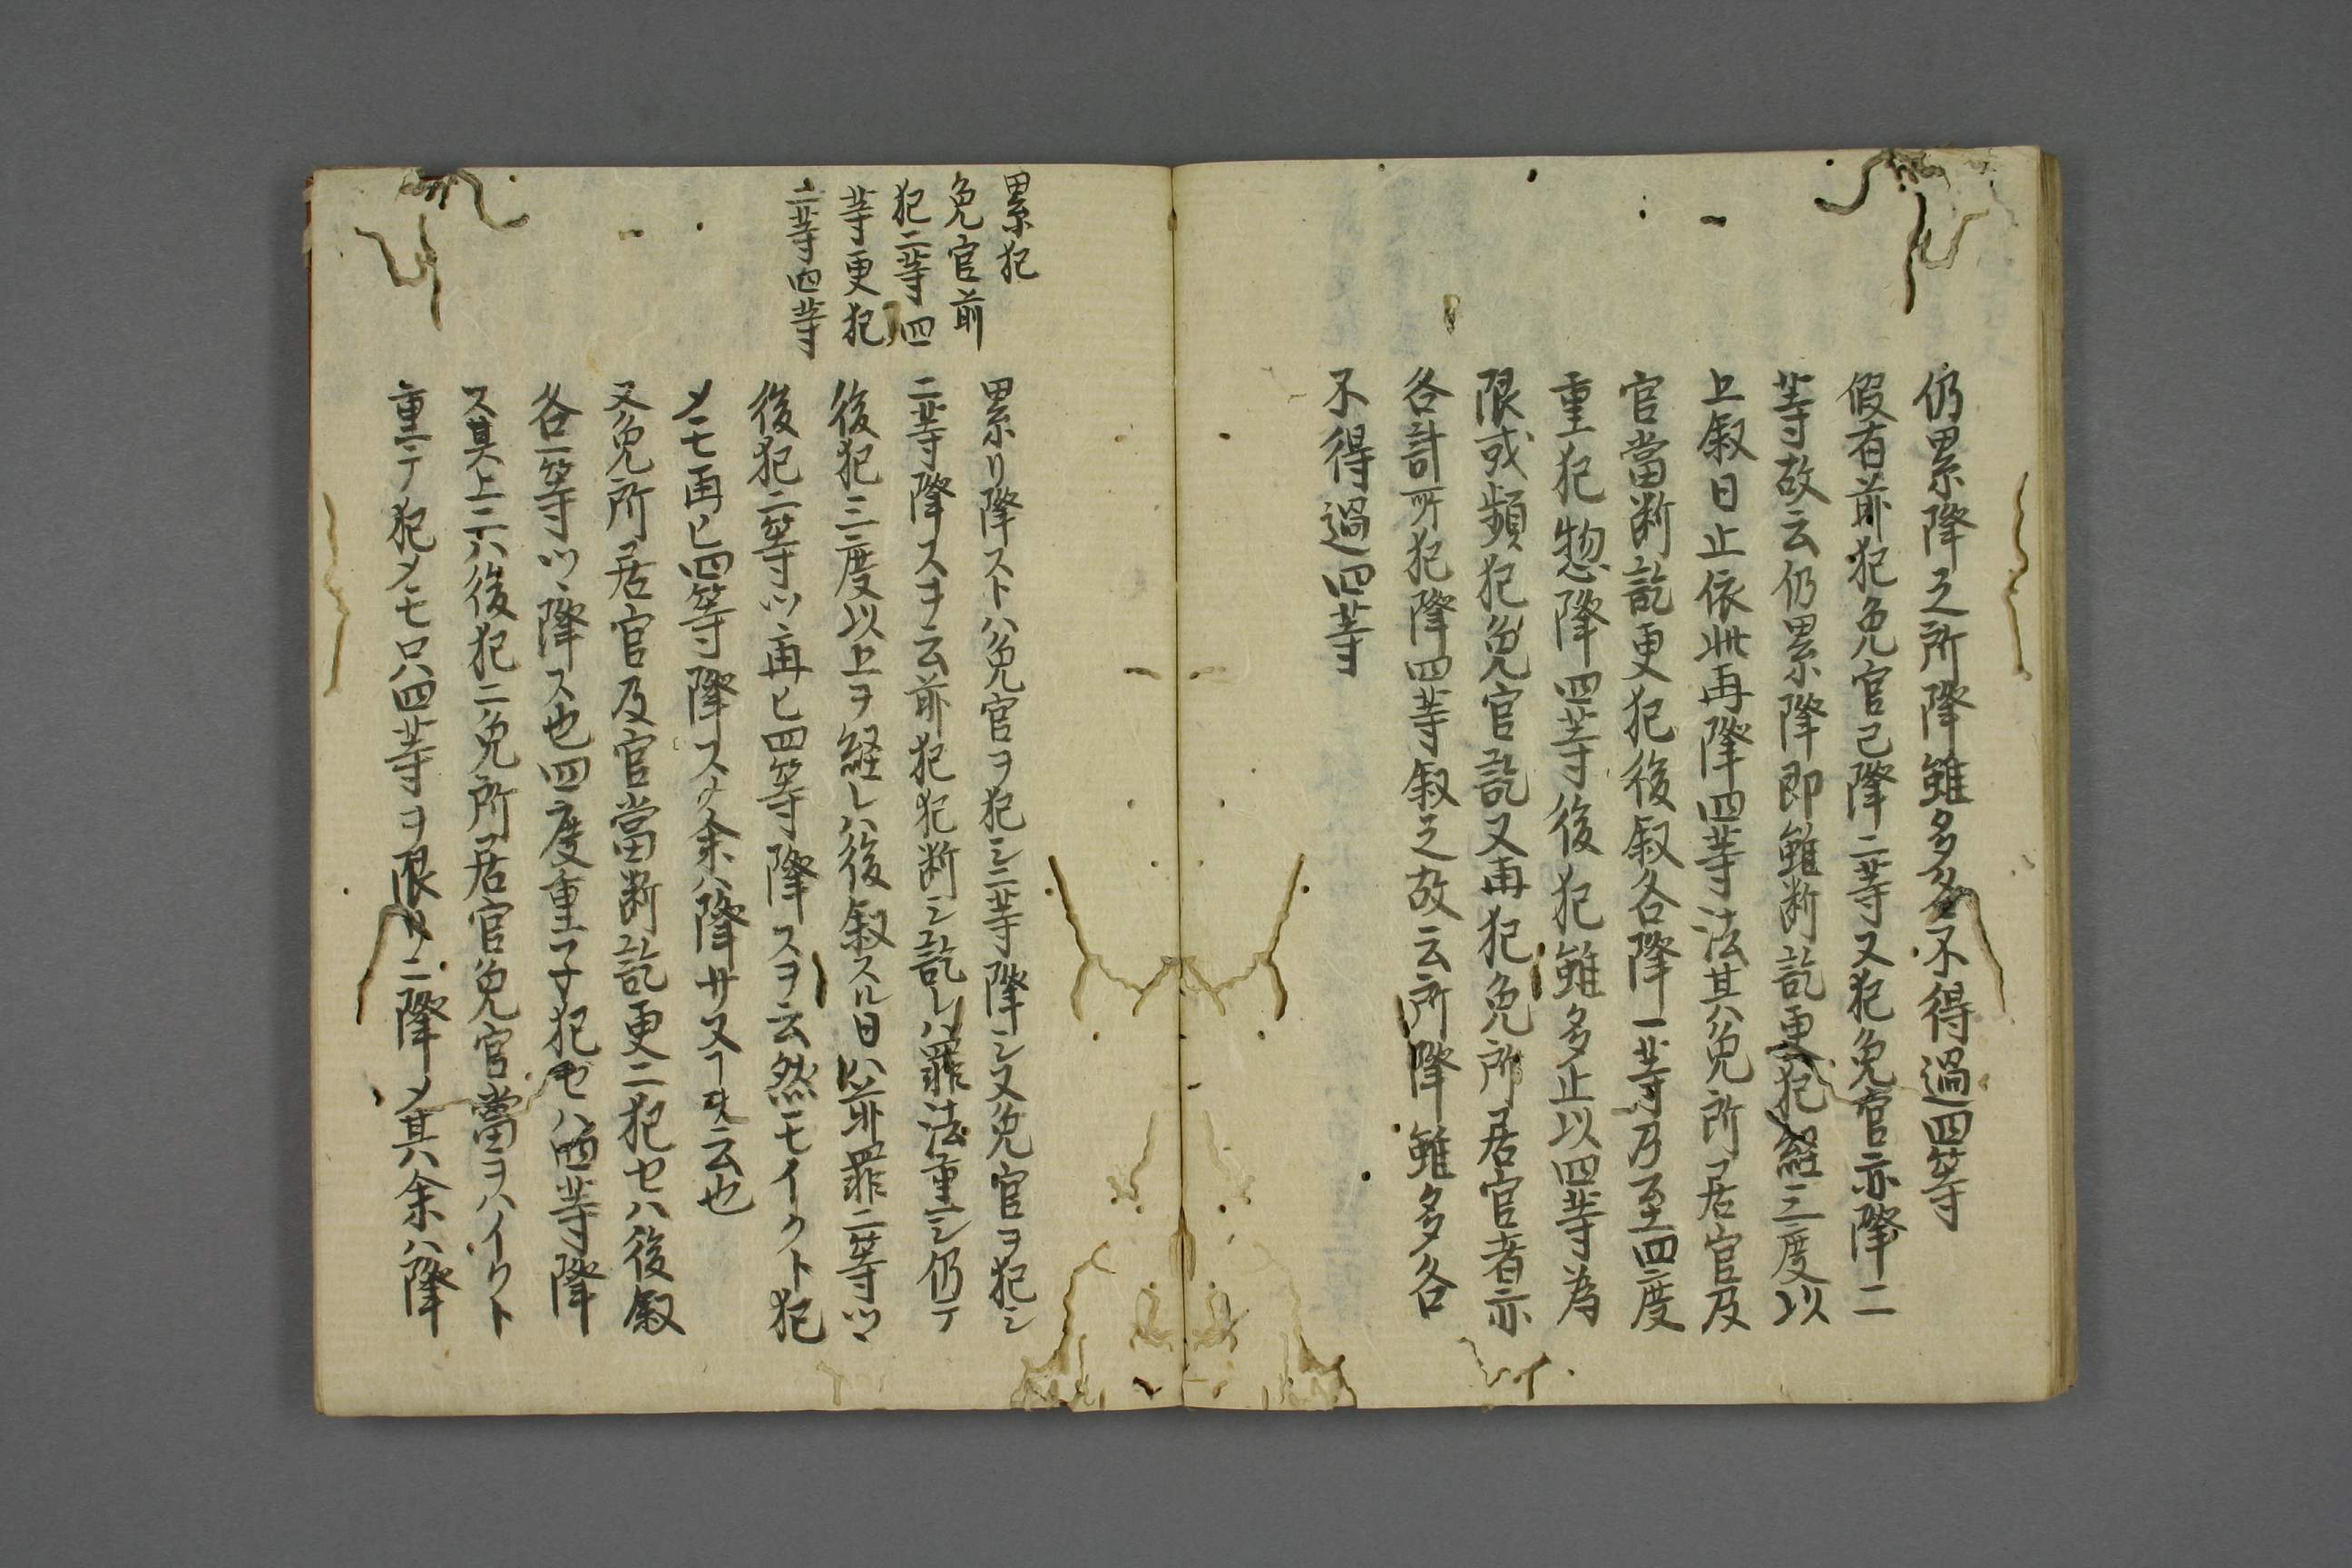 仍累降之所降雖多各不得過四等
假有前犯免官已降二等又犯免官亦降二
等故云仍累降即雖断訖更犯経三度以
上叙日止依此再降四等法其免所居官及
官當断訖更犯後叙各降一等乃至四度
重犯惣降四等後犯雖多止以四等為
限或頻犯免官訖又再犯免所居官者亦
各計所犯降四等叙之故云所降雖多各
不得過四等
累犯
免官前
犯二等四
等更犯
二等四等
累リ降ストハ免官ヲ犯シ二等降シ又免官ヲ犯シ
二等降スヲ云前犯犯断シ訖レハ罪法重シ仍テ
後犯三度以上ヲ経レハ後叙スル日ハ並罪二等ツヽ
後犯二等ツヽ再ヒ四等降スヲ云然モイクト犯
メモ再ヒ四等降ス余ハ降サヌヿヲ云也
又免所居官及官當断訖更ニ犯セハ後叙
各一等ツヽ降ス也四度重子犯セハ四等降
ス其上ニハ後犯ニ免所居官免官當ヲハイクト
重テ犯メモ只四等ヲ限リニ降メ其余ハ降